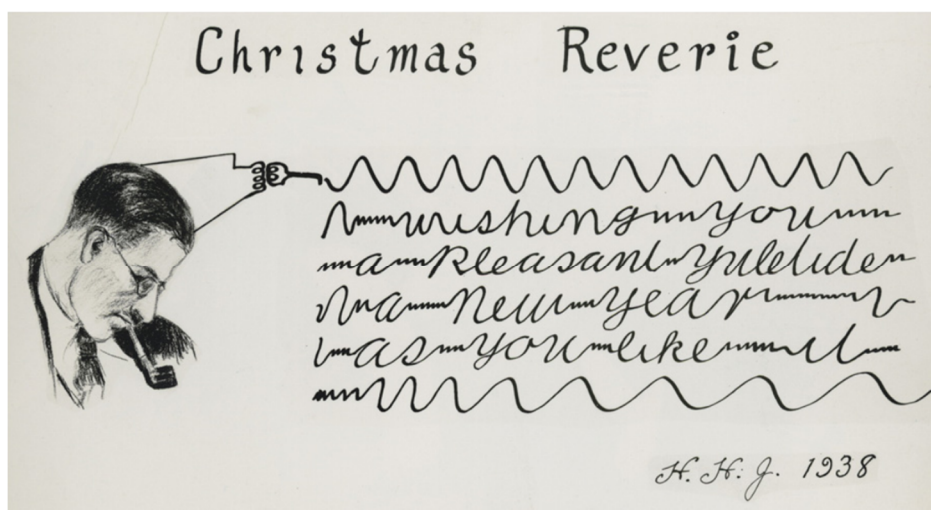 Christmas Reverie
wishing you
a pleasant yuletide
n a new year
as you like it
H. H. J. 1938